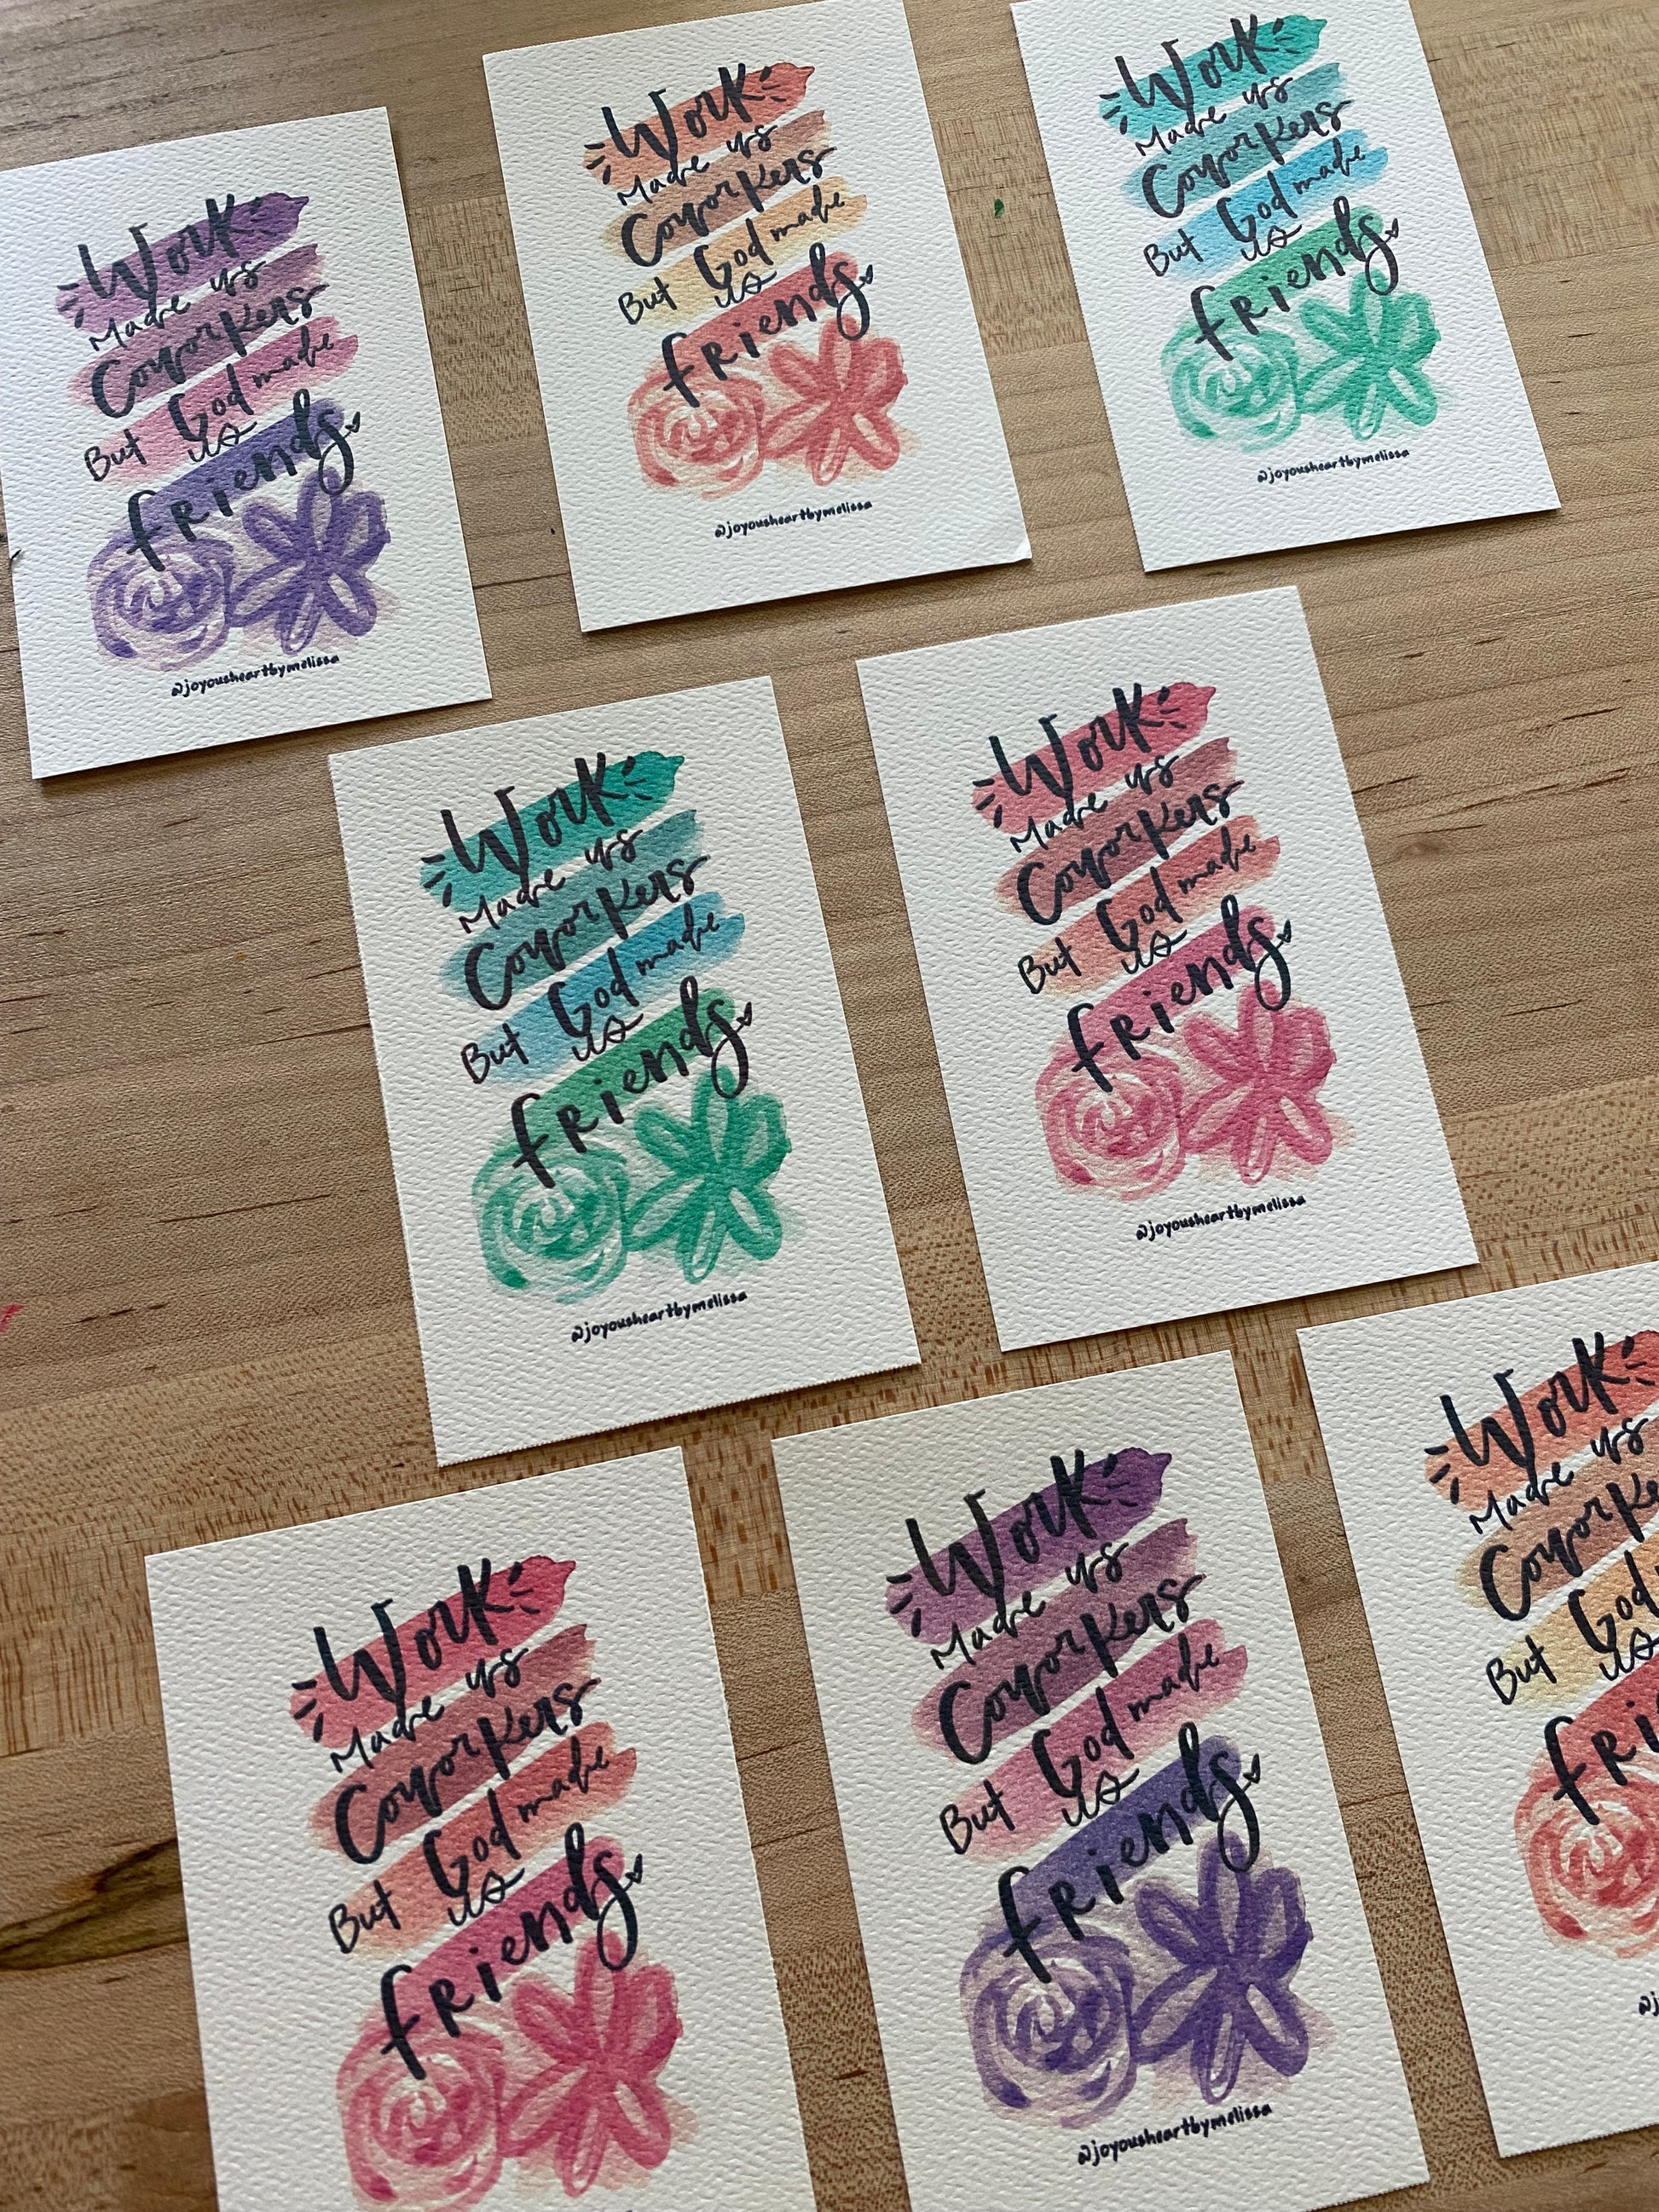 Work
Made us
Coworkers
But God made
us
Friends
@joyousheartbymelissa
Work
Made us
Coworkers
But God made
us
Friends
@joyousheartbymelissa
Work
Made us
Coworkers
But God made
us
Friends
@joyousheartbymelissa
Work
Made us
Coworkers
But God made
us
Friends
@joyousheartbymelissa
Work
Made us
Coworkers
But God made
us
Friends
@joyousheartbymelissa
Work
Made us
Coworkers
But God made
us
Friends
Work
Made us
Coworkers
But God made
us
Friends
@joyousheartbymelissa
Work
Made us
But God
us